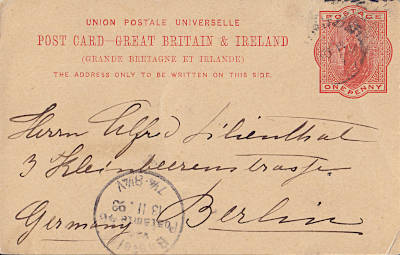 UNION POSTALE UNIVERSELLE
POST CARD—GREAT BRITAIN & IRELAND
(GRANDE BRETAGNE ET IRLANDE)
THE ADDRESS ONLY TO BE WRITTEN ON THIS SIDE.
POSTAGE
ONE PENNY
Herrn Alfred Lilienthal
3 Kleinbeerenstrasse
Germany Berlin
13 11. 93
7¼-8¼V